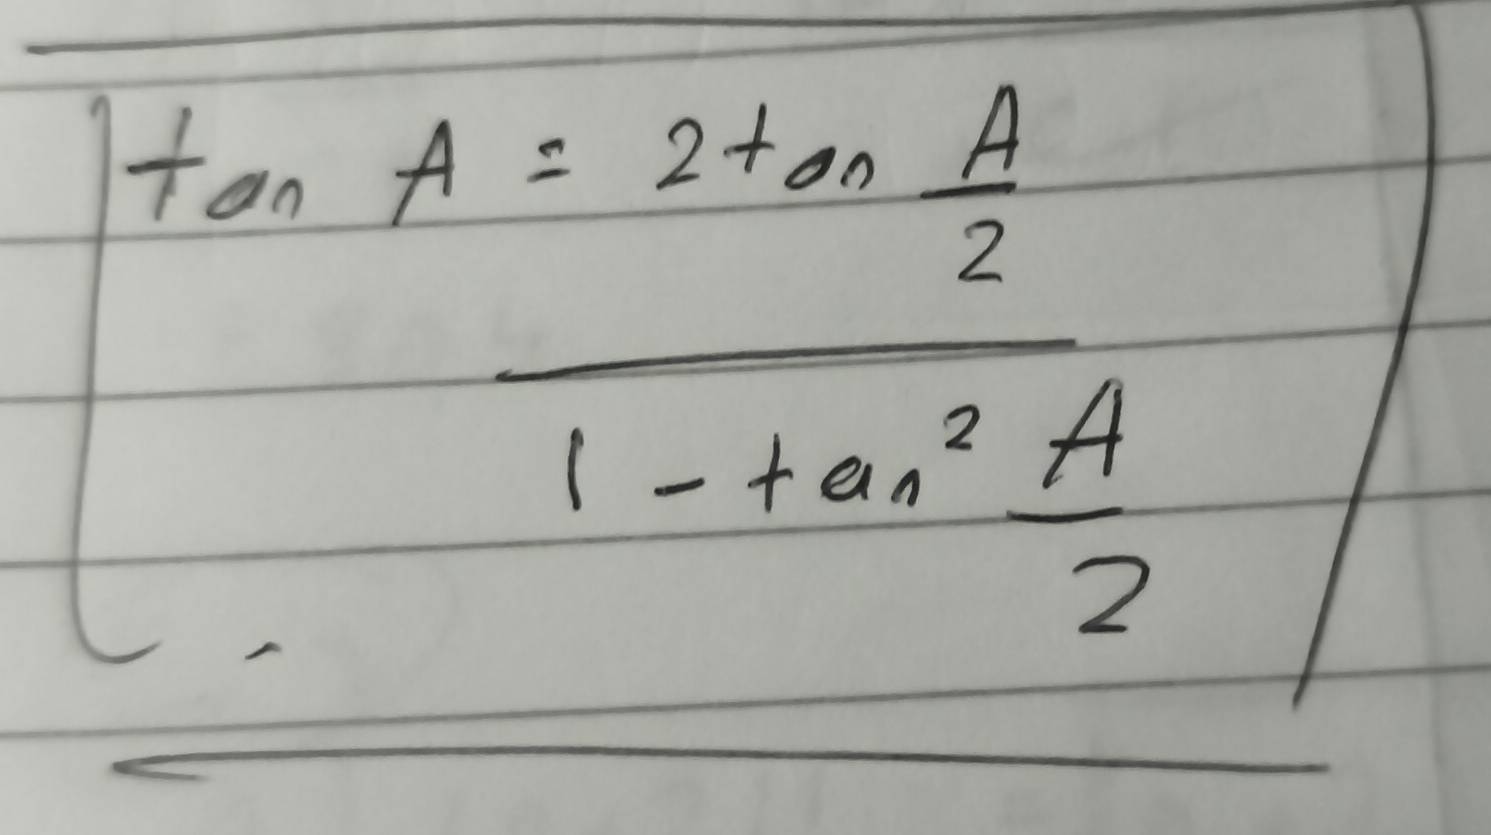 tan A = 2 tan A/2
1 - tan² A/2